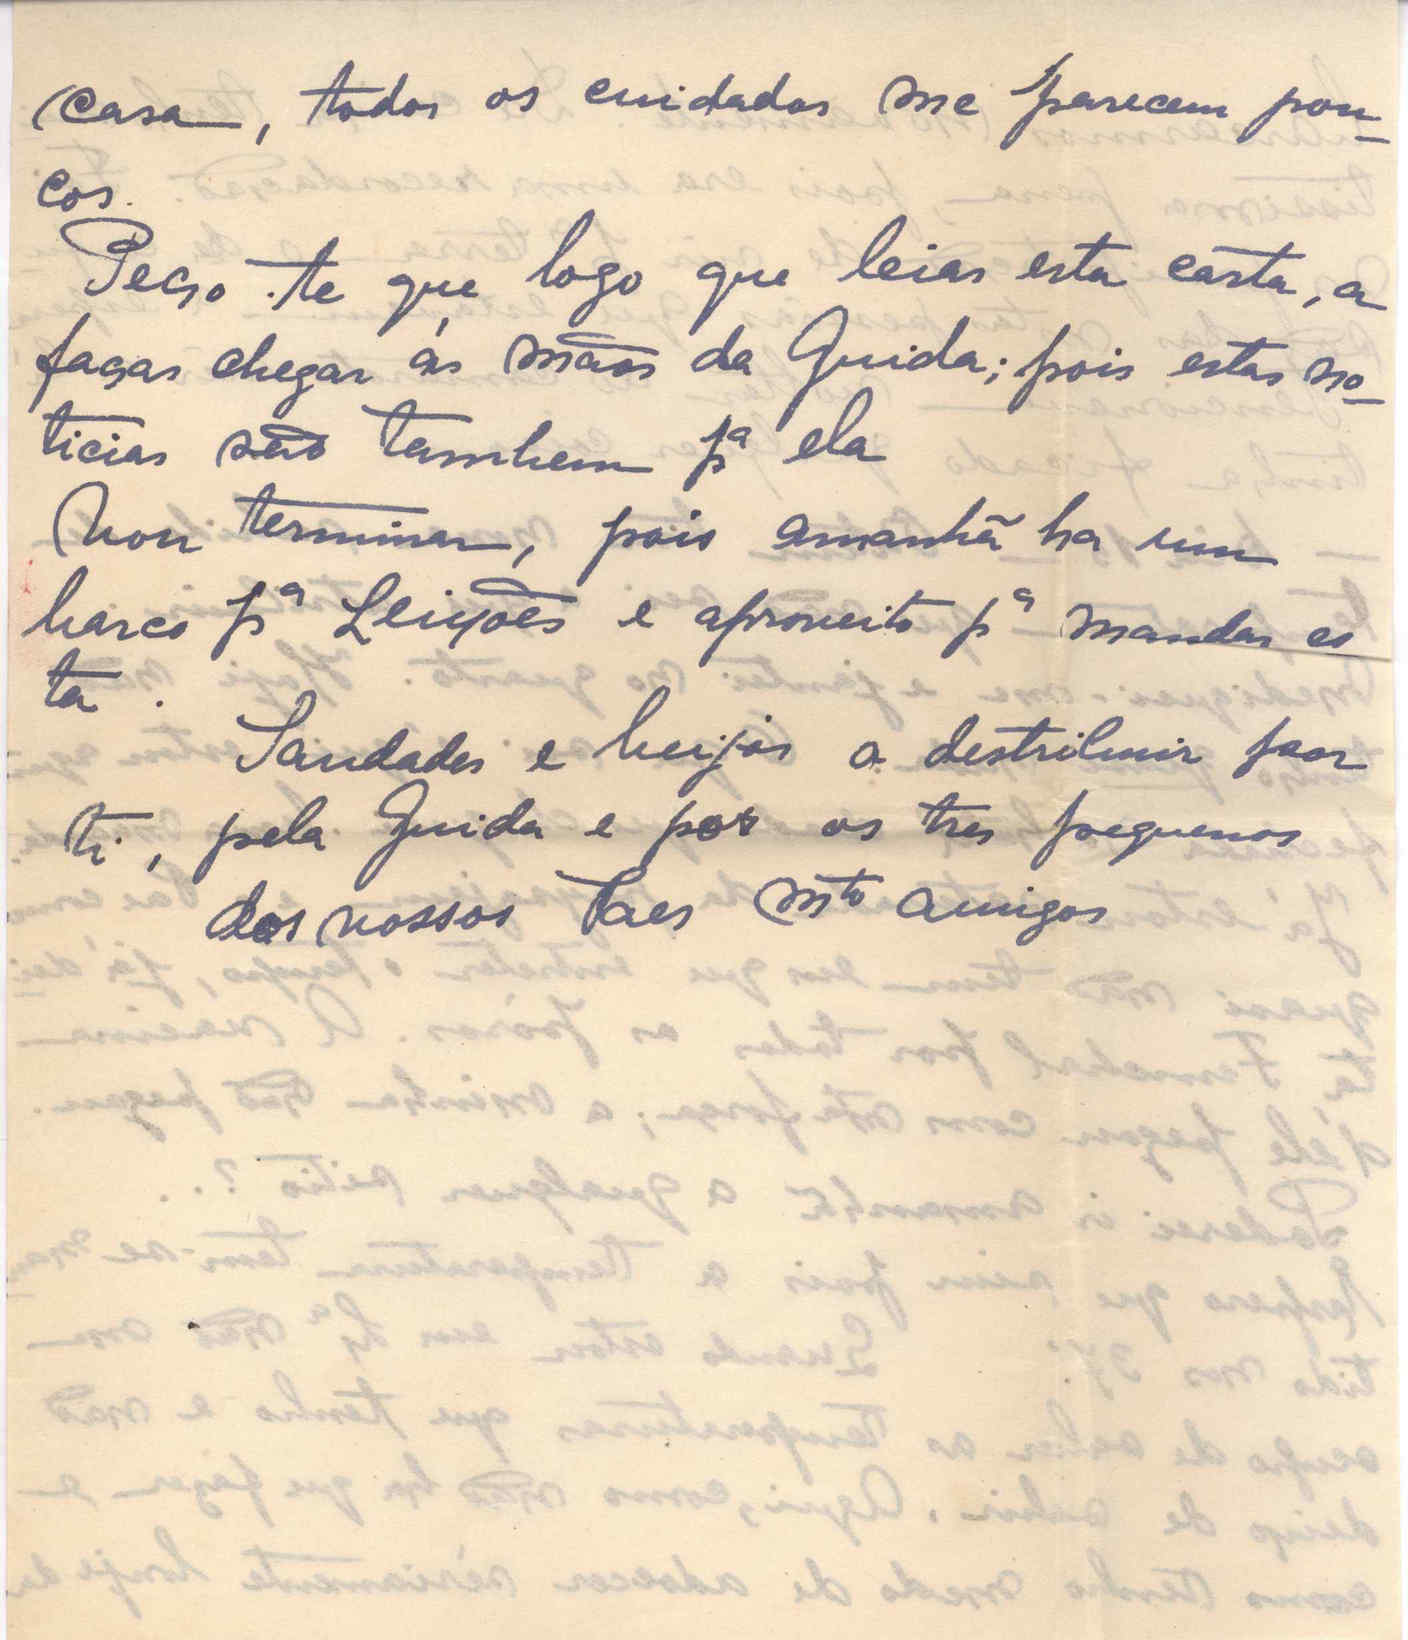 casa, todos os cuidados me parecem pou-
cos.
Peço-te que logo que leias esta carta, a
faças chegar ás mãos da Guida; pois estas no-
ticias são tambem pª ela
Vou terminar, pois amanhã ha um
barco pª Leixões e aproveito pª mandar es
ta.
Saudades e beijos a destribuir por
ti, pela Guida e por os tres pequenos
dos vossos Paes mto amigos